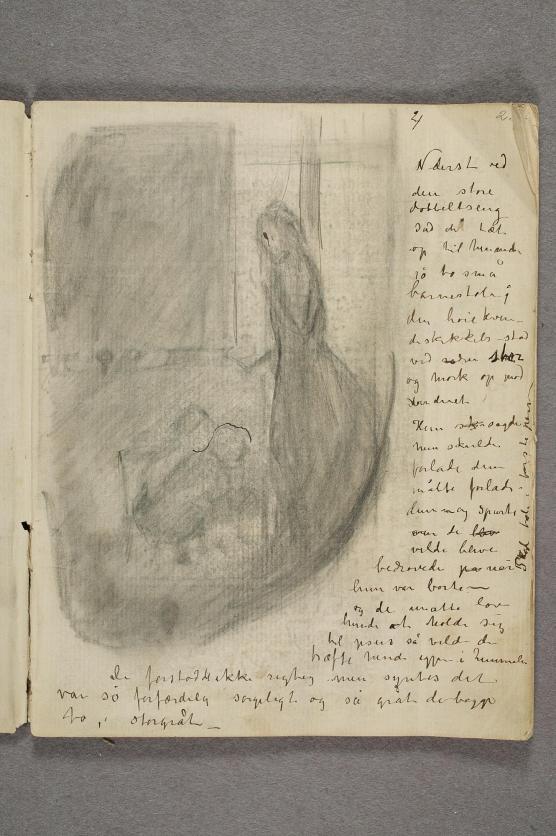 4
2
Nderst ved
den store
dobbeltseng
sad det tæt
op til hinanden
på to små
barnestole;
den høie kvin-
deskikkels stod
ved siden stor
og mørk op mod
vinduet.
Hun sagde
hun skulde
forlade dem
måtte forlade
dem og spurte
om de
vilde blive
bedrøvede når
hun var borte
og de måtte lov
hende at holde sig
til Jesus så vilde de
træffe hende igjen i himmelen
De forstod ikke rigtig men syntes det
var så forfærdelig sørgeligt og så gråt de begge
to i storgråt